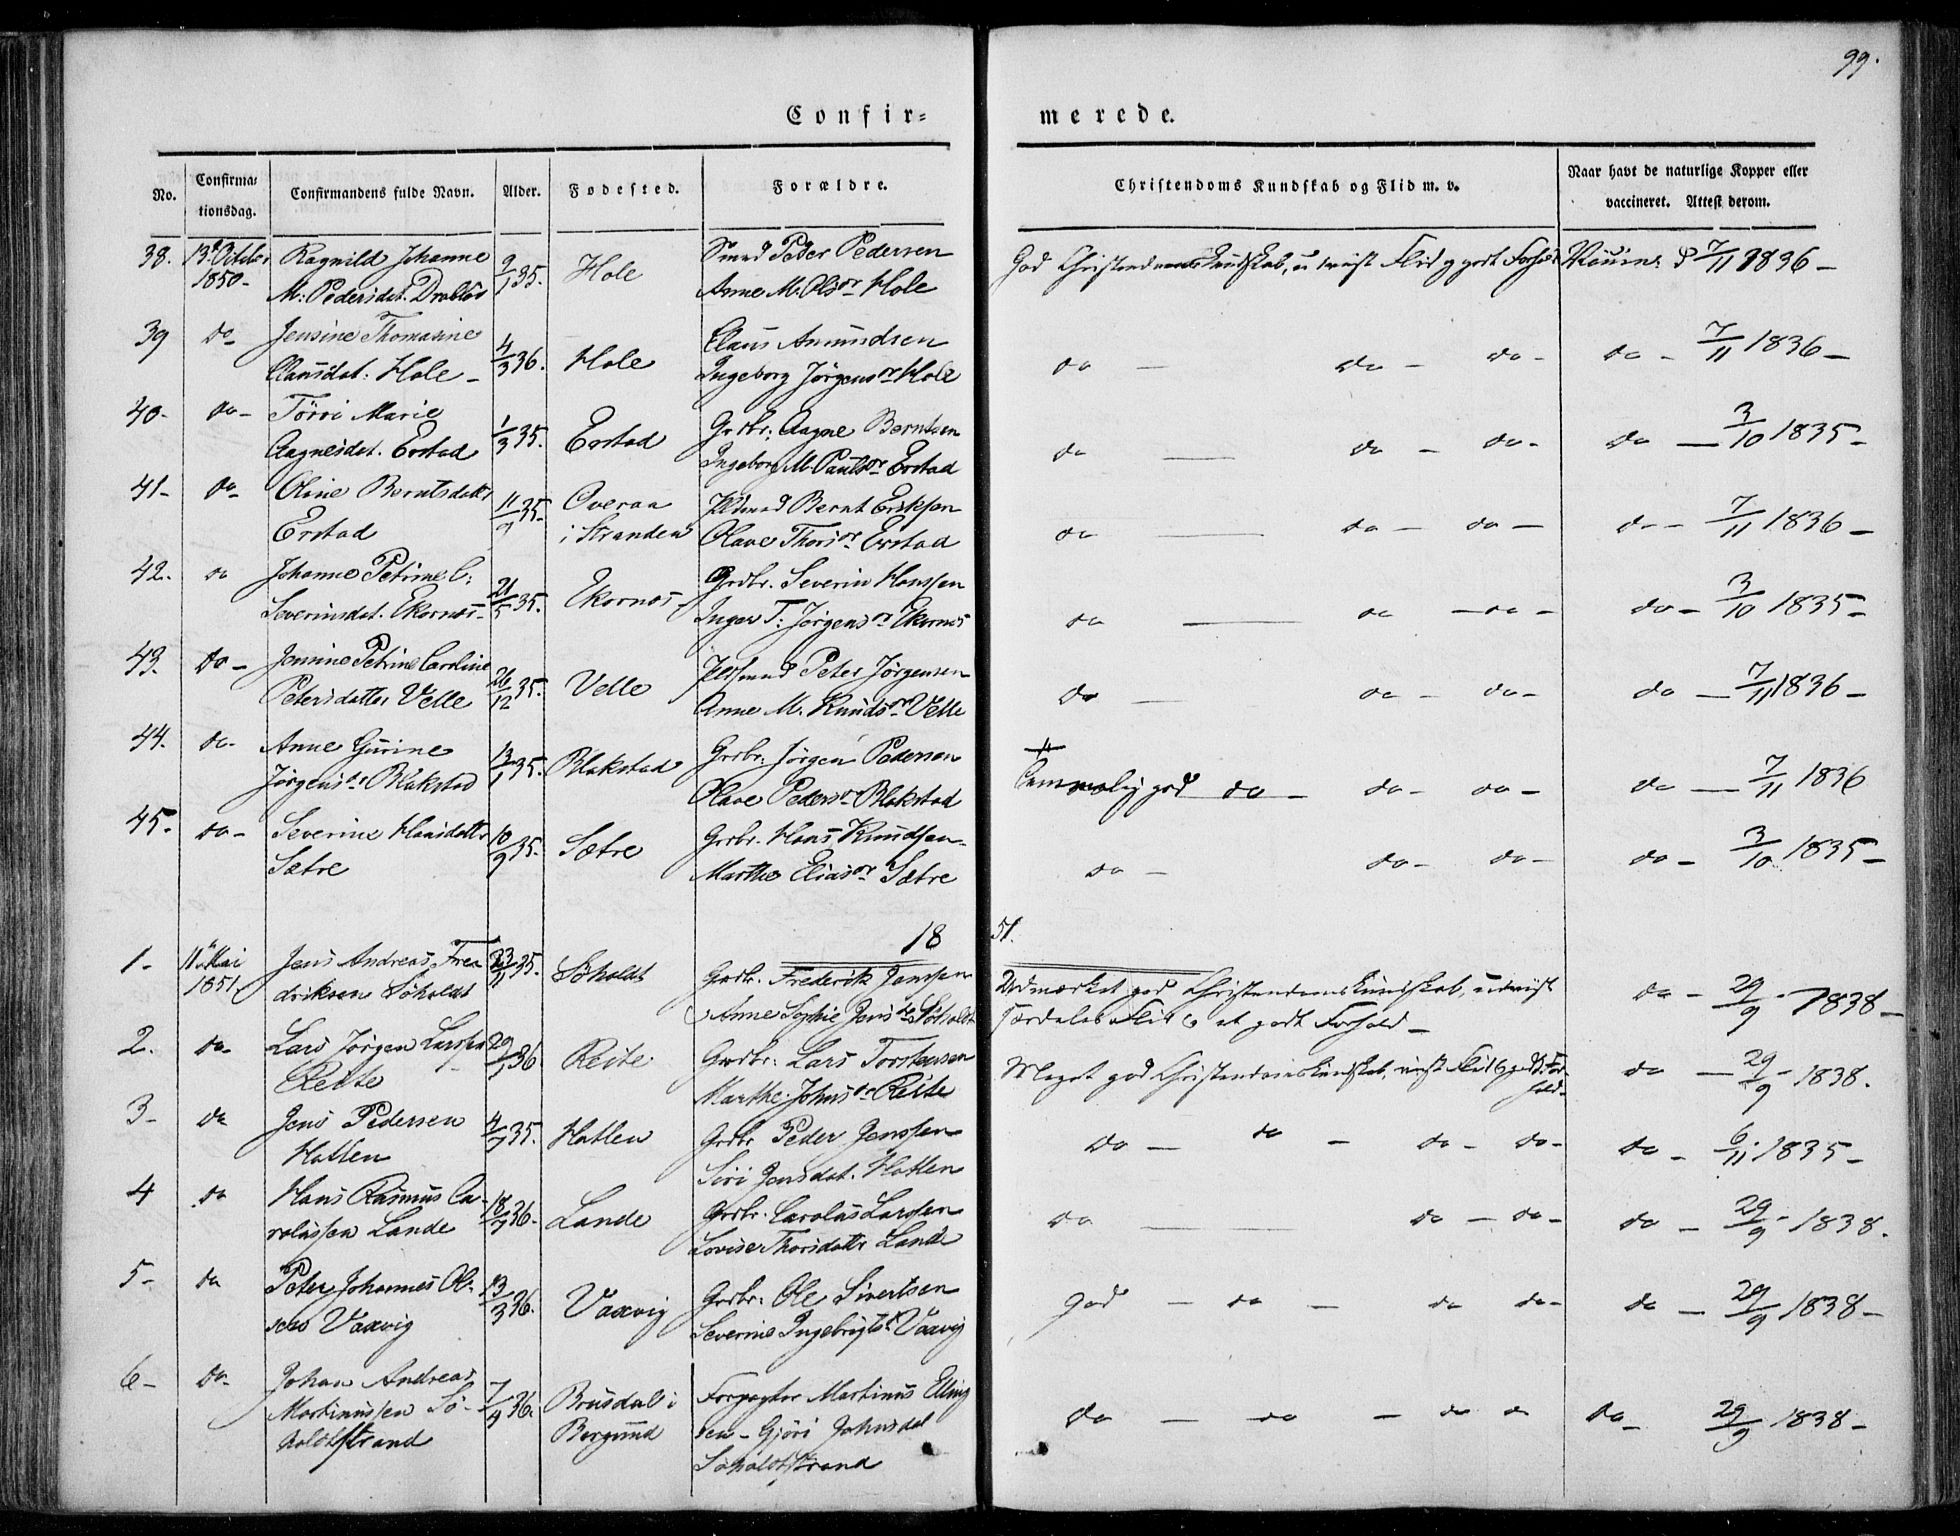 99.
Confir=
merede.
No.
Confirma=
tionsdag.
Confirmandens fulde Navn.
Alder.
Fødested.
Forældre.
Christendoms Kundskab og Flid m. v.
Naar havt de naturlige Kopper eller
vaccineret. Attest derom.
38. 13d October Ragnild Johanne 9/1 35. Hole Peder Pedersen God Christendomskundskab, Flid g godt Forhold 7/11 1836 -
1850- M: Pedersdat. Drabløs Anne M. Olsdr Hole
39 do- Jensine Thomasine 4/3 36. Hole Claus Amundsen do - do - do - do - 7/11 1836 -
Clausdat: Hole - Ingeborg Jørgensdr Hole
40- do- Tørri Marie 1/3 35. Erstad Grdbr. Aagne Berntsen do - do - do - do - 3/10 1835 -
Aagnesdat. Erstad Ingeborg M. Paulsdr Erstad
41- do- Oline Berntsdatter 11/9 35- Overaa Bernt Eriksen do - do - do - do - 7/11 1836 -
Erstad i Stranden Olave Thorsdr Erstad
42. do Johanne Petrine C: 21/5 35. Ekornæs Grdbr. Severin Hanssen do - do - do - do - 3/10 1835 -
Severinsdat. Ekornæs- Inger T: Jørgensdr Ekornæs
43. do- Jensine Petrine Caroline 26/12 35. Velle Peter Jørgensen do - do - do - do - 7/11 1836 -
Petersdatter Velle Anne M. Knudsdr Velle
44. do- Anne Gurine 13/1 35. Blakstad Grdbr. Jørgen Pedersen Temmelig god do - do - do - do - 7/11 1836
Jørgensdr Blakstad Olave Pedersdr Blakstad
45. do- Severine Hansdatter 10/9 35. Sætre Grdbr. Hans Knudsen do - do - do - do - 3/10 1835 -
Sætre Marthe Eliasdr Sætre
18 51.
1- 11te Mai Jens Andreas Fre- 23/11 35. Søholdt Grdbr. Frederik Janssen Udmærket god Christendomskundskab, udviist do - 29/9 - 1838 -
1851. driksen Søholdt Anne Sophie Jensdr Søholdt særdeles Flid g et godt Forhold -
2. do- Lars Jørgen Larssen 29/1 36 Reite Grdbr. Lars Torstensen Meget god Christendomskundskab, viist Flid g godt For- do - 29/9 - 1838.
Reite Marthe Johnsdr Reite hold-
3- do Jens Pedersen 4/7 35. Hatlen Grdbr Peder Jenssen do - do - do - do - do - 6/11 1835 -
Hatlen Siri Jensdat. Hatlen
4 do Hans Rasmus Ca- 18/7 36- Lande Grdbr. Carolus Larssen do - do - do - do - 29/9 - 1838.
rolussen Lande Lovise Thorsdattr Lande
5- do Peter Johannes Ol- 13/3 36. Vaxvig Grdbr. Ole Sivertsen God - do - do do - do - 29/9 1838 -
sen Vaxvig Severine Ingebrigtsdr Vaxvig
6- do- Johan Andreas 7/4 36. Brusdal i Forpagter Martinus Elling- do - do - do do do - 29/9 1838 -
Martinussen Sø- Borgund sen - Gjøri Johnsdat
holdtstrand Søholdtstrand